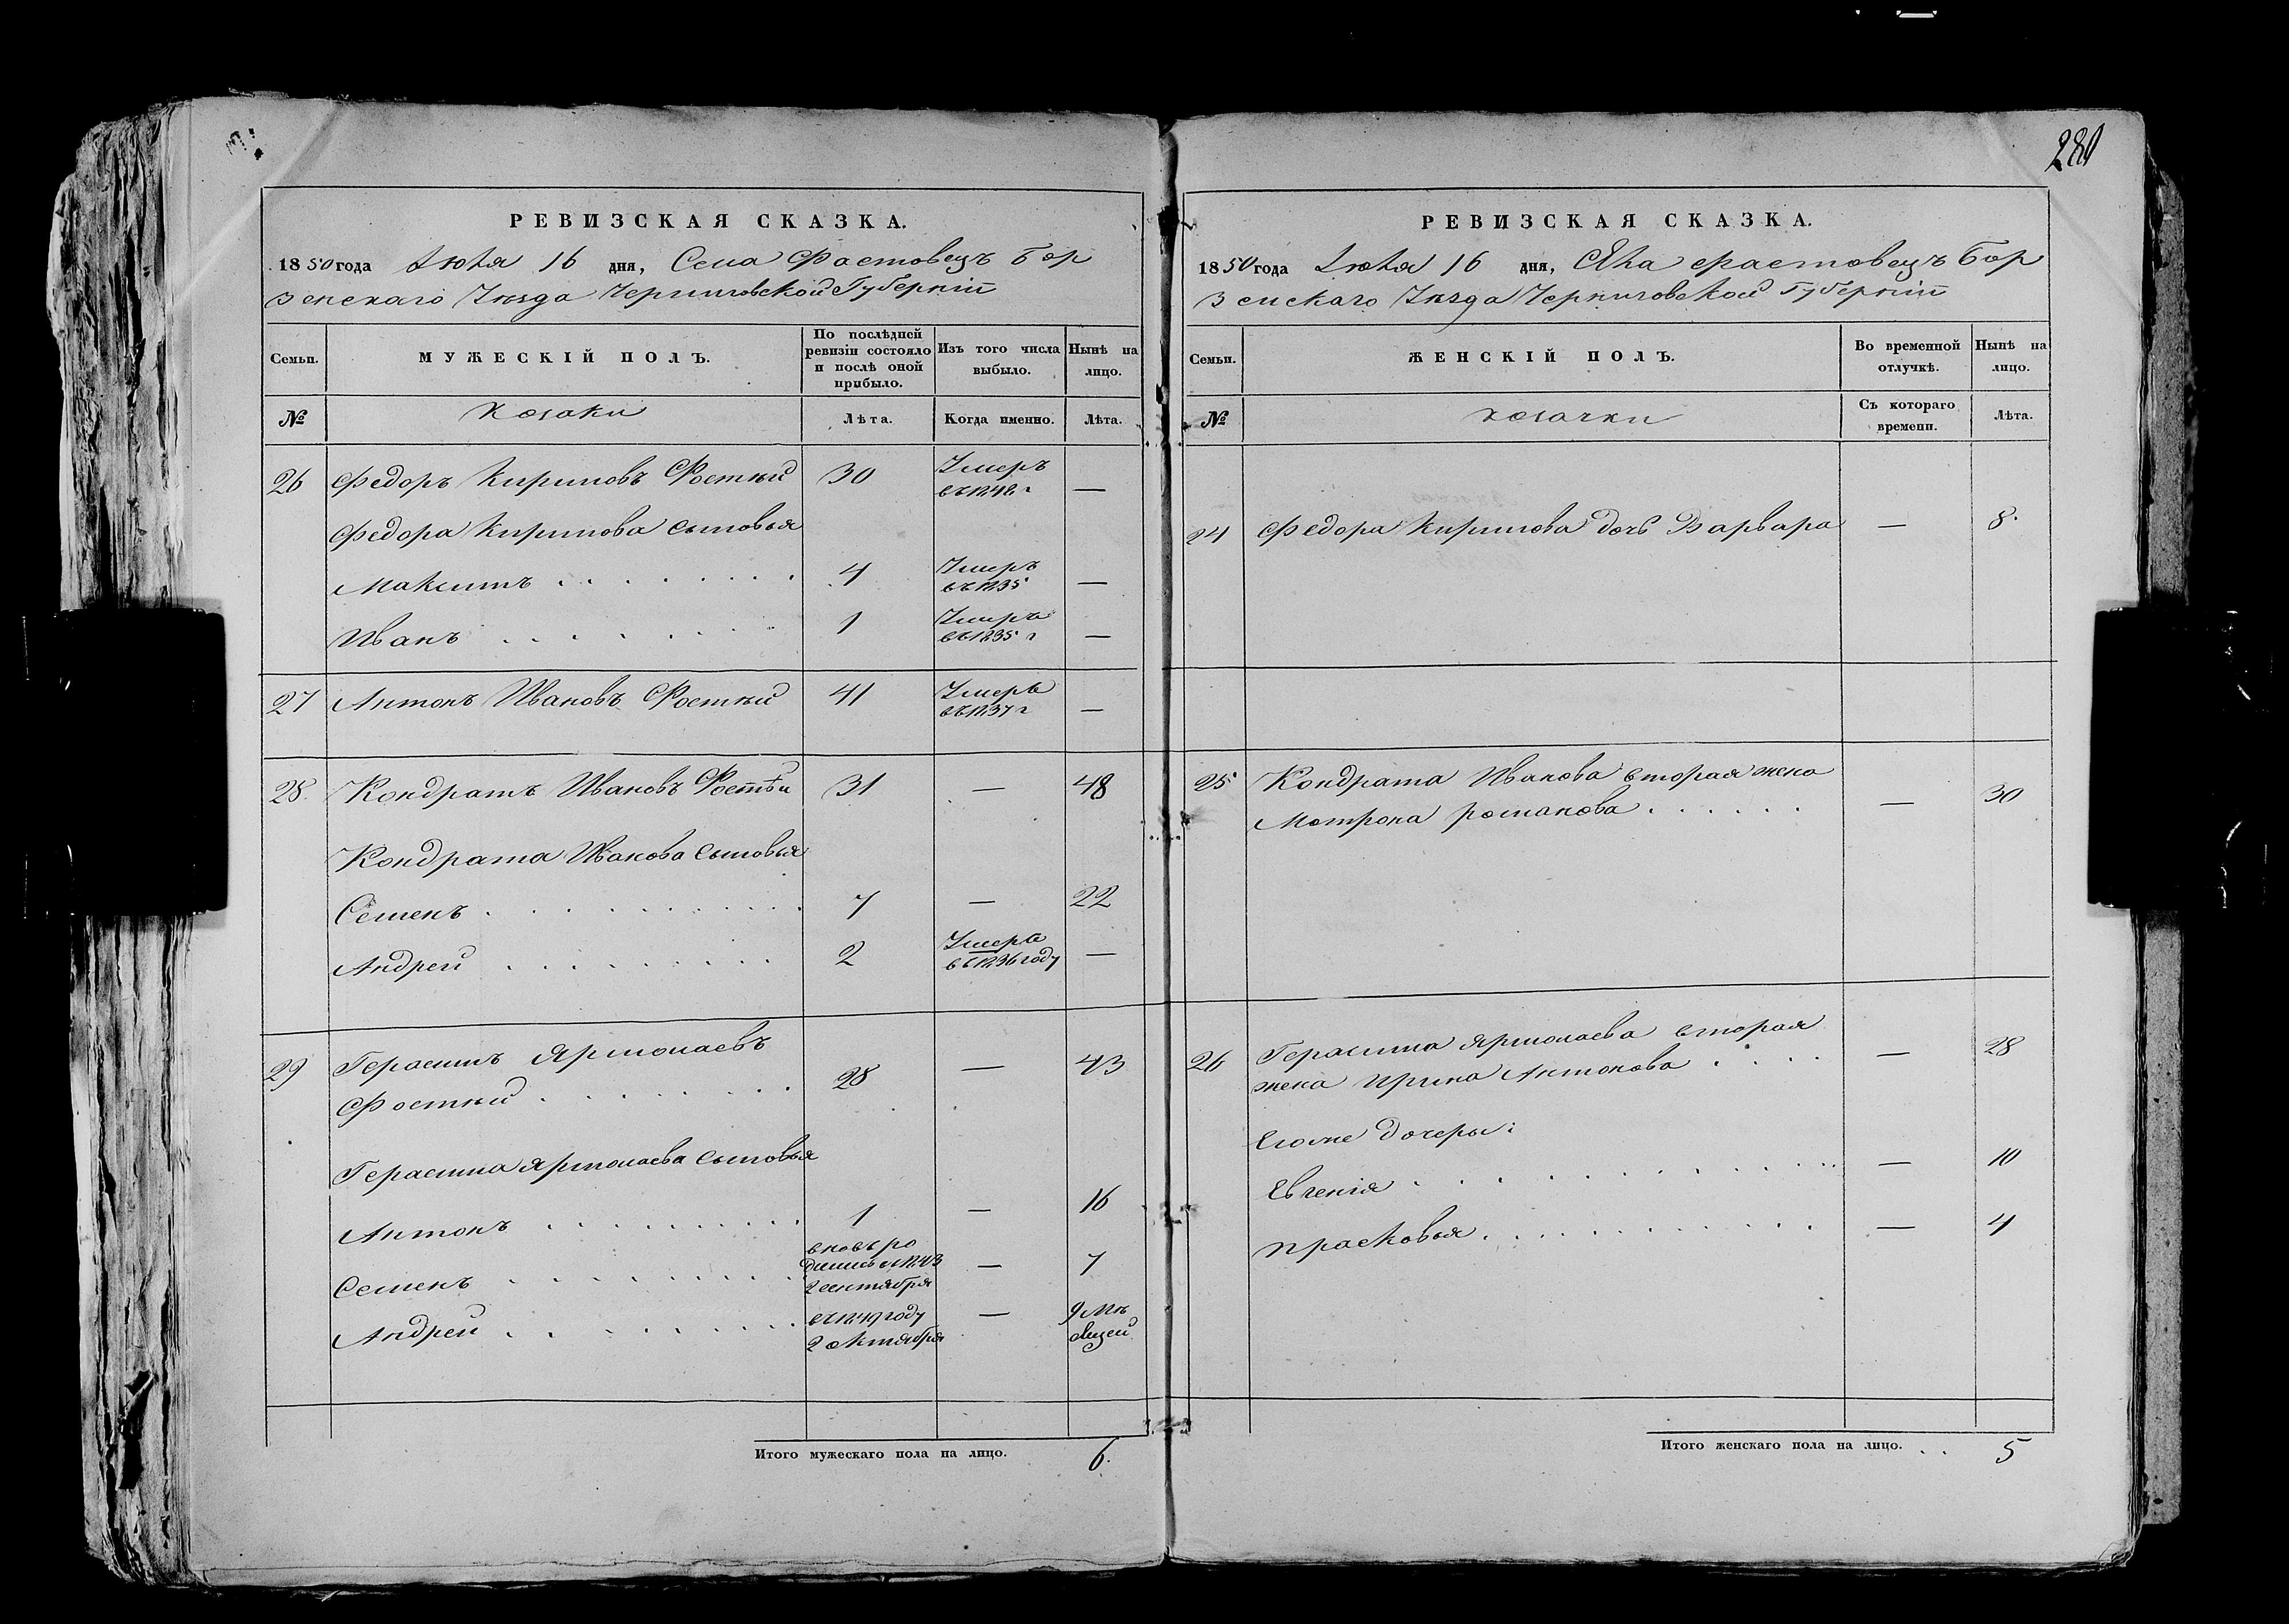 280
РЕВИЗСКАЯ СКАЗКА.
1850 года Июля 16 дня, Села Фастовецъ Бор
зенскаго Уѣзда Черниговской Губерніи
Семьи. МУЖЕСКІЙ ПОЛЪ. По послѣдней ревизіи состояло и послѣ оной прибыло. Изъ того числа выбыло. Нынѣ на лицо.
№ козаки Лѣта. Когда именно. Лѣта.
26 Федоръ Кириловъ Фостый 30 Умеръ въ 1848 г —
Федора Кирилова сыновья
Максимъ 4 Умеръ въ 1835 —
Иванъ 1 Умеръ въ 1835 г —
27 Антонъ Ивановъ Фостый 41 Умеръ въ 1837 г —
28 Кондратъ Ивановъ Фостый 31 — 48
Кондрата Иванова сыновья
Семенъ 7 — 22
Андрей 2 Умеръ въ 1836 году —
29 Герасимъ Ярмолаевъ
Фостый 28 — 43
Герасима Ярмолаева сыновья
Антонъ 1 — 16
Семенъ вновь родился 1843 2 сентября — 7
Андрей въ 1849 году 2 октября — 9 мѣсяцей
Итого мужескаго пола на лицо. 6.
РЕВИЗСКАЯ СКАЗКА.
1850 года Июля 16 дня, Села Фастовецъ Бор
зенскаго Уѣзда Черниговской Губерніи
Семьи. ЖЕНСКІЙ ПОЛЪ. Во временной отлучкѣ. Нынѣ на лицо.
№ козачки Съ котораго времени. Лѣта.
24 Федора Кирилова дочь Варвара — 8.
25 Кондрата Иванова вторая жена
Мотрона романова — 30
26 Герасима Ярмолаева вторая
жена Ирина Антонова — 28
Егоже дочеры:
Евгенія — 10
прасковья — 4
Итого женскаго пола на лицо. 5